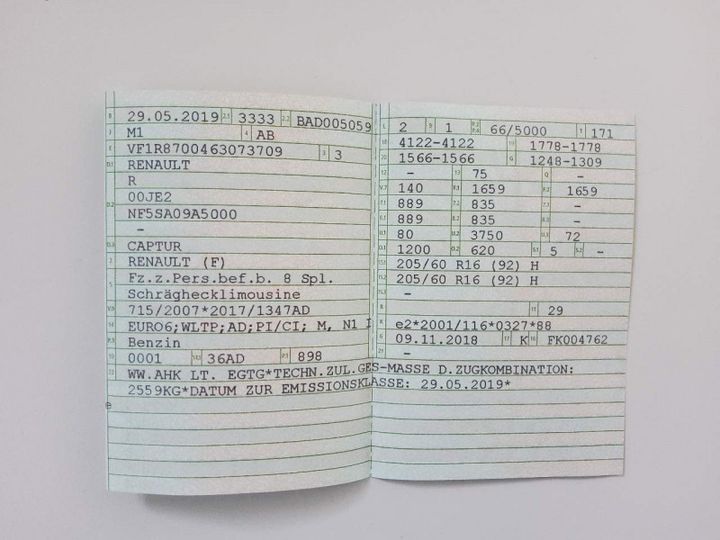 29.05.2019 3333 BAD005059
M1 AB
VF1R8700463073709 3
RENAULT
R
00JE2
NF5SA09A5000
-
CAPTUR
RENAULT (F)
Fz.z.Pers.bef.b. 8 Spl.
Schräghecklimousine
715/2007*2017/1347AD
EURO6;WLTP;AD;PI/CI; M, N1 I
Benzin
0001 36AD 898
2 1 66/5000 171
4122-4122 1778-1778
1566-1566 1248-1309
- 75 -
140 1659 1659
889 835 -
889 835 -
80 3750 72
1200 620 5 -
205/60 R16 (92) H
205/60 R16 (92) H
-
29
e2*2001/116*0327*88
09.11.2018 K FK004762
-
WW.AHK LT. EGTG*TECHN.ZUL.GES-MASSE D.ZUGKOMBINATION:
2559KG*DATUM ZUR EMISSIONSKLASSE: 29.05.2019*
e